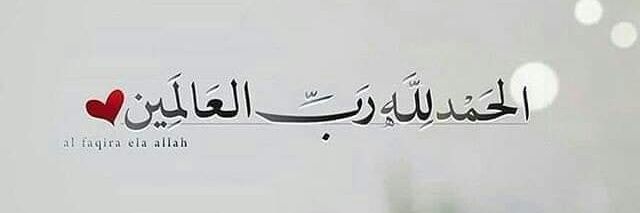 الحَمْد لِلَّهِ رَبِّ العَالَمِين
al faqira ela allah